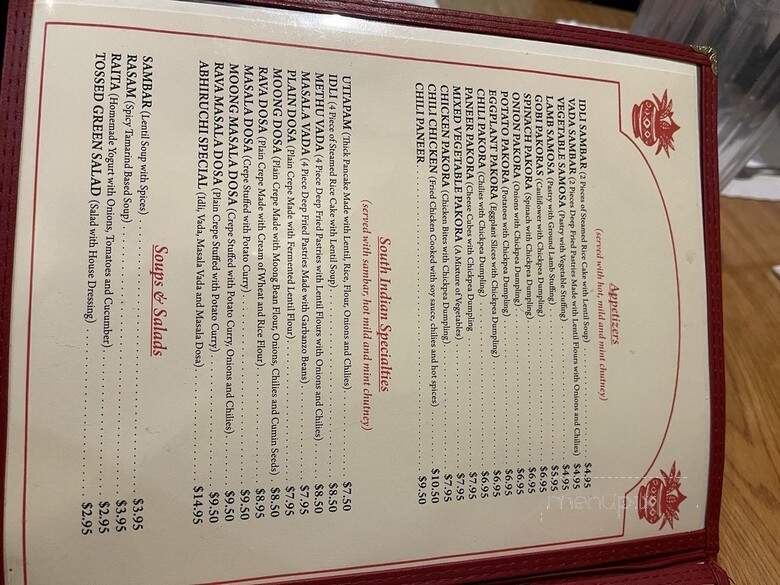 Appetizers
(served with hot, mild and mint chutney)
IDLI SAMBAR (2 Pieces of Steamed Rice Cake with Lentil Soup) $4.95
VADA SAMBAR (2 Pieces Deep Fried Pastries Made with Lentil Flours with Onions and Chilies) $4.95
VEGETABLE SAMOSA (Pastry with Vegetable Stuffing) $4.95
LAMB SAMOSA (Pastry with Ground Lamb Stuffing) $5.95
GOBI PAKORAS (Cauliflower with Chickpea Dumpling) $6.95
SPINACH PAKORA (Spinach with Chickpea Dumpling) $6.95
ONION PAKORA (Onions with Chickpea Dumpling) $6.95
POTATO PAKORA (Potatoes with Chickpea Dumpling) $6.95
EGGPLANT PAKORA (Eggplant Slices with Chickpea Dumpling) $6.95
CHILI PAKORA (Chilies with Chickpea Dumpling) $6.95
PANEER PAKORA (Cheese Cubes with Chickpea Dumpling $7.95
MIXED VEGETABLE PAKORA (A Mixture of Vegetables) $7.95
CHICKEN PAKORA (Chicken Bites with Chickpea Dumpling) $7.95
CHILI CHICKEN (Fried Chicken Cooked with soy sauce, chilies and hot spices) $10.50
CHILI PANEER $9.50
South Indian Specialties
(served with sambar, hot mild and mint chutney)
UTTAPAM (Thick Pancake Made with Lentil, Rice Flour, Onions and Chilies) $7.50
IDLI (4 Piece of Steamed Rice Cake with Lentil Soup) $8.50
METHU VADA (4 Piece Deep Fried Pastries with Lentil Flours with Onions and Chilies) $8.50
MASALA VADA (4 Piece Deep Fried Pastries Made with Garbanzo Beans) $7.95
PLAIN DOSA (Plain Crepe Made with Fermented Lentil Flour) $7.95
MOONG DOSA (Plain Crepe Made with Moong Bean Flour, Onions, Chilies and Cumin Seeds) $8.50
RAVA DOSA (Plain Crepe Made with Cream of Wheat and Rice Flour) $8.95
MASALA DOSA (Crepe Stuffed with Potato Curry) $9.50
MOONG MASALA DOSA (Crepe Stuffed with Potato Curry, Onions and Chilies) $9.50
RAVA MASALA DOSA (Plain Crepe Stuffed with Potato Curry) $9.50
ABHIRUCHI SPECIAL (Idli, Vada, Masala Vada and Masala Dosa) $14.95
Soups & Salads
SAMBAR (Lentil Soup with Spices) $3.95
RASAM (Spicy Tamarind Based Soup) $3.95
RAITA (Homemade Yogurt with Onions, Tomatoes and Cucumber) $2.95
TOSSED GREEN SALAD (Salad with House Dressing) $2.95